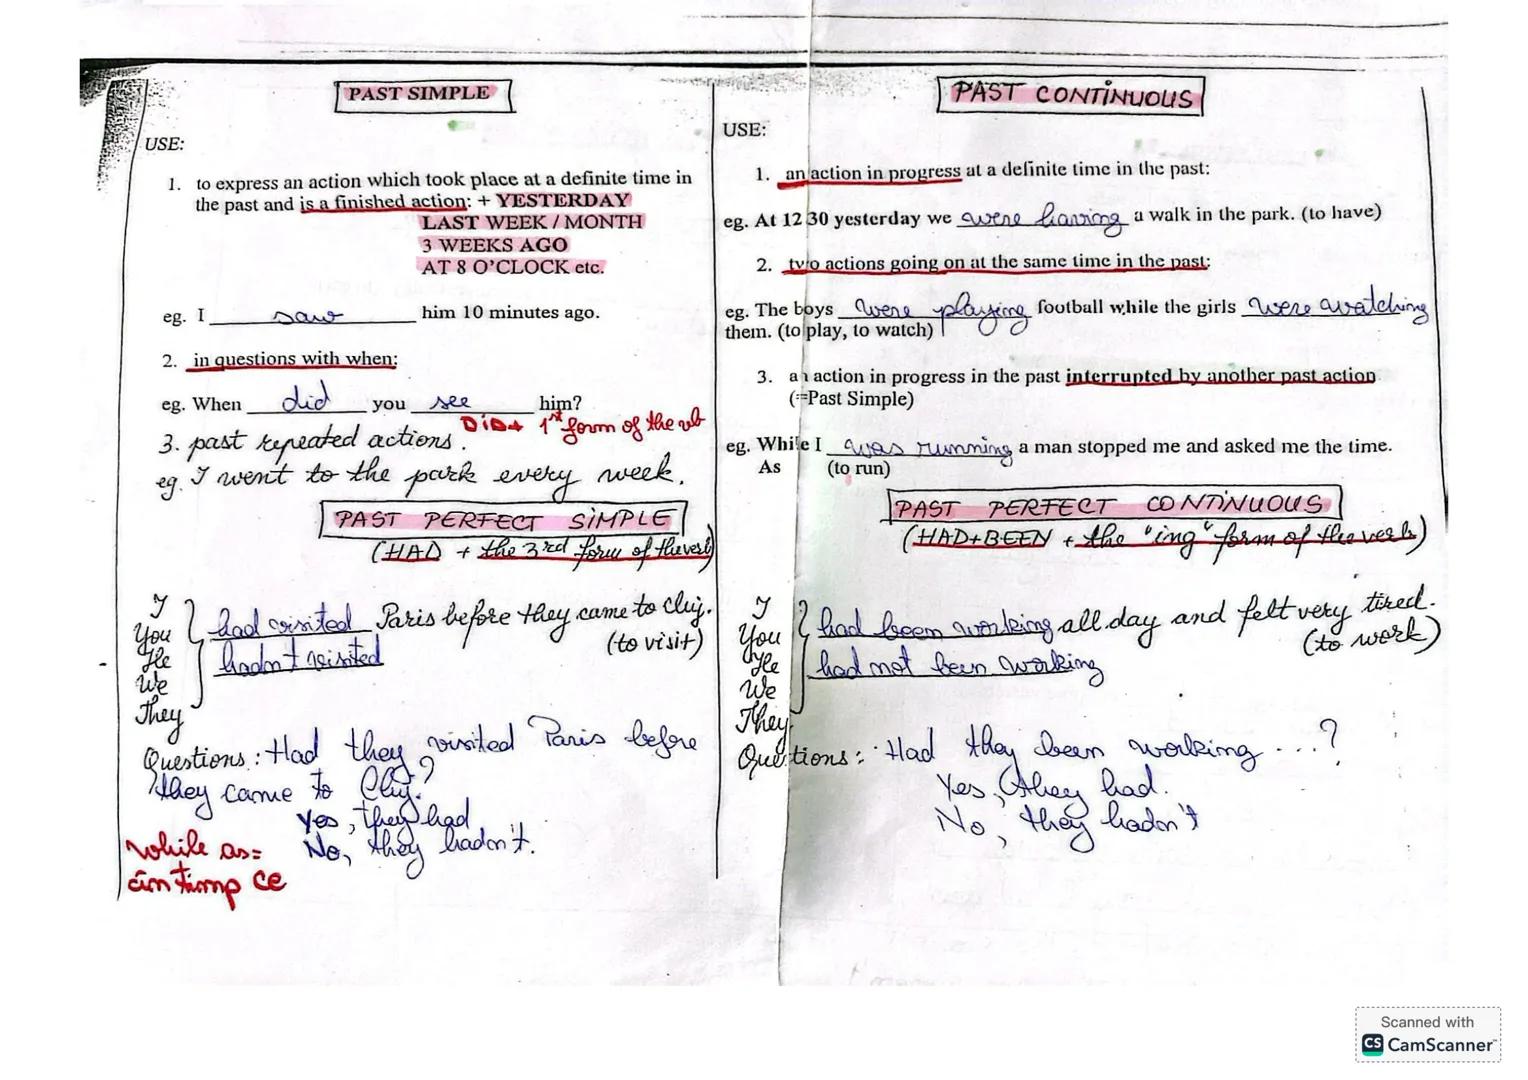 PAST SIMPLE
USE:
1. to express an action which took place at a definite time in
the past and is a finished action: + YESTERDAY
LAST WEEK / MONTH
3 WEEKS AGO
AT 8 O'CLOCK etc.
eg. I saw him 10 minutes ago.
2. in questions with when:
eg. When did you see him?
DID+ 1st form of the vb
3. past repeated actions.
eg. I went to the park every week.
PAST PERFECT SIMPLE
(HAD + the 3rd form of the verb)
I
You
He
We
They
had visited Paris before they came to Cluj.
hadn't visited (to visit)
Questions: Had they visited Paris before
they came to Cluj?
Yes, they had
No, they hadn't.
while as=
în timp ce
PAST CONTINUOUS
USE:
1. an action in progress at a definite time in the past:
eg. At 12 30 yesterday we were having a walk in the park. (to have)
2. two actions going on at the same time in the past:
eg. The boys were playing football while the girls were watching
them. (to play, to watch)
3. an action in progress in the past interrupted by another past action
(=Past Simple)
eg. While I was running a man stopped me and asked me the time.
As (to run)
PAST PERFECT CONTINUOUS
(HAD+BEEN + the "ing" form of the verb)
I
You
He
We
They
had been working all day and felt very tired.
had not been working (to work)
Questions: Had they been working ...?
Yes, they had.
No, they hadn't
Scanned with
CS CamScanner